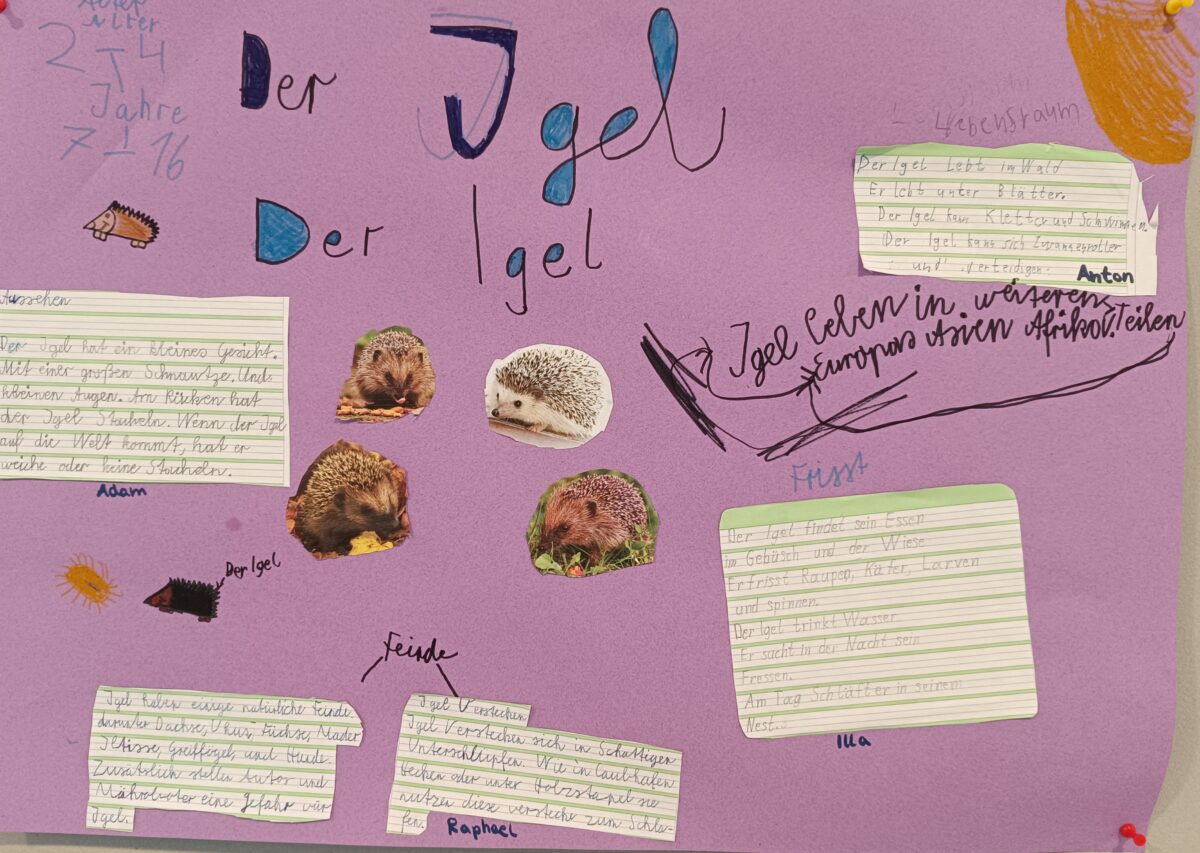 Alter
2 - 4
Jahre
7 - 16
Der Igel
Der Igel
Lebensraum
Der Igel Lebt im Wald
Er lebt unter Blätter.
Der Igel kann Klettern und Schwimmen.
Der Igel kann sich
und verteidigen.
Anton
Igel leben in weiteren Teilen
Europas Asien Afrikas.
Aussehen
Der Igel hat ein kleines Gesicht.
Mit einer großen Schnautze. Und
kleinen Augen. Am Rücken hat
der Igel Stacheln. Wenn der Igel
auf die Welt kommt, hat er
weiche oder keine Stacheln.
Adam
Frisst
Der Igel findet sein Essen
im Gebüsch und der Wiese
Er frisst Raupen, Käfer, Larven
und spinnen.
Der Igel trinkt Wasser
Er sucht in der Nacht sein
Fressen.
Am Tag Schläft er in seinem
Nest.
Illa
Der Igel
Feinde
Igel haben einige natürliche Feinde.
darunter Dachse, Uhus, Füchse, Mader
Iltisse, Greiffögel, und Hude.
Zusätslich stellen Autos und
Mähroboter eine gefahr vür
Igel.
Igel Verstecken
Igel Verstecken sich in Schattigen
Unterschlüpfen. Wie in Laubhafen
Hecken oder unter Holzstapel sie
nutzen diese verstecke zum Schla-
fen.
Raphael